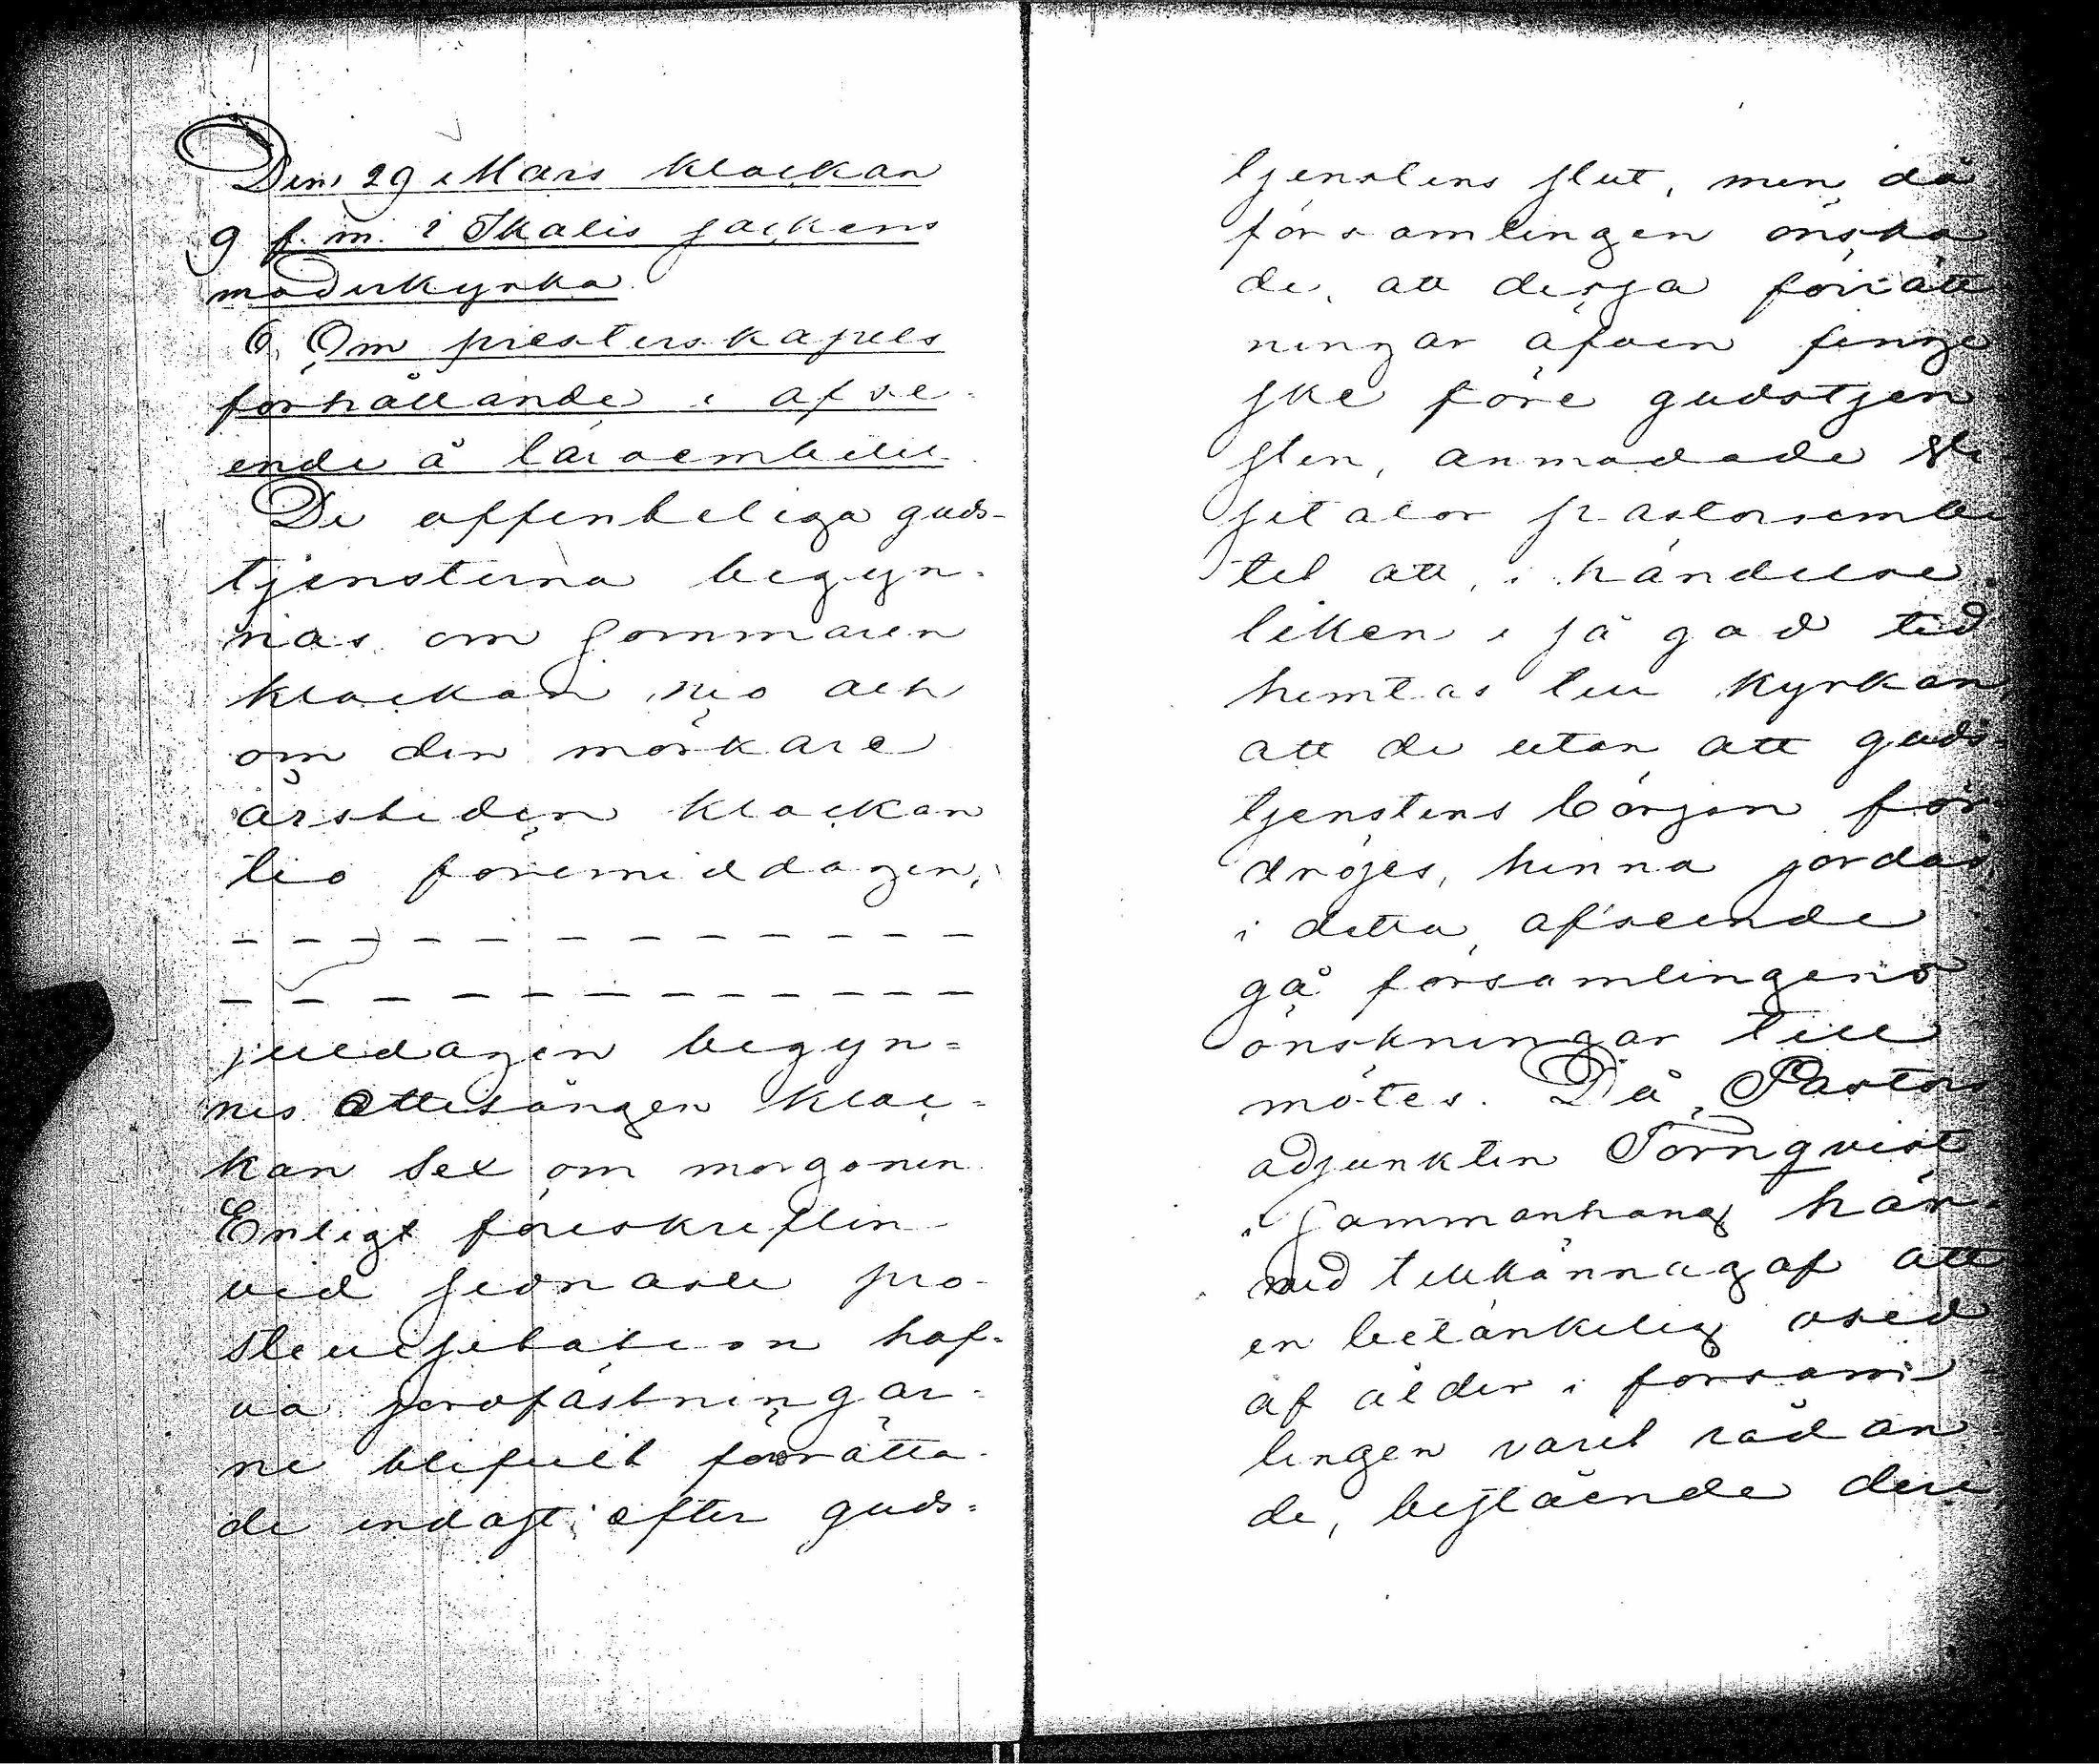 Den 29 Mars klockan
9 f.m. i Skatis sockens
moderkyrka.
6. Om presterskapets
förhållande i afse-
ende å läroembetet.
De offenteliga guds-
tjensterna begyn-
nas om sommaren
klockan nio och
om den mörkare
årstiden klockan
tio förmiddagen,
_ _ _ _ _ _ _ _ _ _ _ _
_ _ _ _ _ _ _ _ _ _ _ _
juldagen begyn=
nes ottesången kloc=
kan sex om morgonen.
Enligt föreskriften
vid sednaste pro-
stevisitation haf-
va jordfästningar-
ne blifvit förrätta-
de endast efter guds=
tjenstens slut, men då
församlingen önska
de, att dessa förrätt
ningar äfven finge
ske före gudstjen
sten, anmodade Vi-
sitator pastorsembe
tet att, i händelse
liken i så god tid
hemtas till kyrkan,
att de utan att guds-
tjenstens början för
dröjes, hinna jordas,
i detta afseende
gå församlingens
önskningar till
mötes. Då Pastors
adjunkten Törnqvist
i sammanhang här-
med tillkännagaf att
en betänkelig osed
af ålder i försam
lingen varit rådan
de, bestående deri,